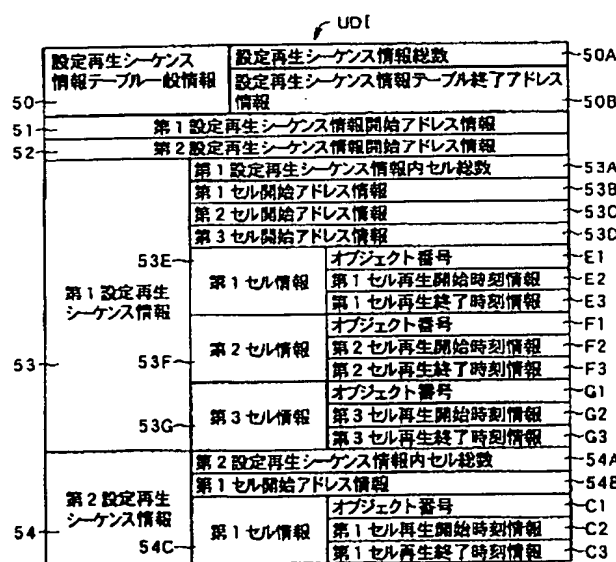 UDI
設定再生シーケンス
情報テーブル一般情報
設定再生シーケンス情報総数
50A
設定再生シーケンス情報テーブル終了アドレス
情報
50
50B
51
第1設定再生シーケンス情報開始アドレス情報
52
第2設定再生シーケンス情報開始アドレス情報
第1設定再生シーケンス情報内セル総数
53A
第1セル開始アドレス情報
53B
第2セル開始アドレス情報
53C
第3セル開始アドレス情報
53D
第1設定再生
シーケンス情報
53
53E
第1セル情報
オブジェクト番号
E1
第1セル再生開始時刻情報
E2
第1セル再生終了時刻情報
E3
53F
第2セル情報
オブジェクト番号
F1
第2セル再生開始時刻情報
F2
第2セル再生終了時刻情報
F3
53G
第3セル情報
オブジェクト番号
G1
第3セル再生開始時刻情報
G2
第3セル再生終了時刻情報
G3
第2設定再生
シーケンス情報
54
第2設定再生シーケンス情報内セル総数
54A
第1セル開始アドレス情報
54B
54C
第1セル情報
オブジェクト番号
C1
第1セル再生開始時刻情報
C2
第1セル再生終了時刻情報
C3